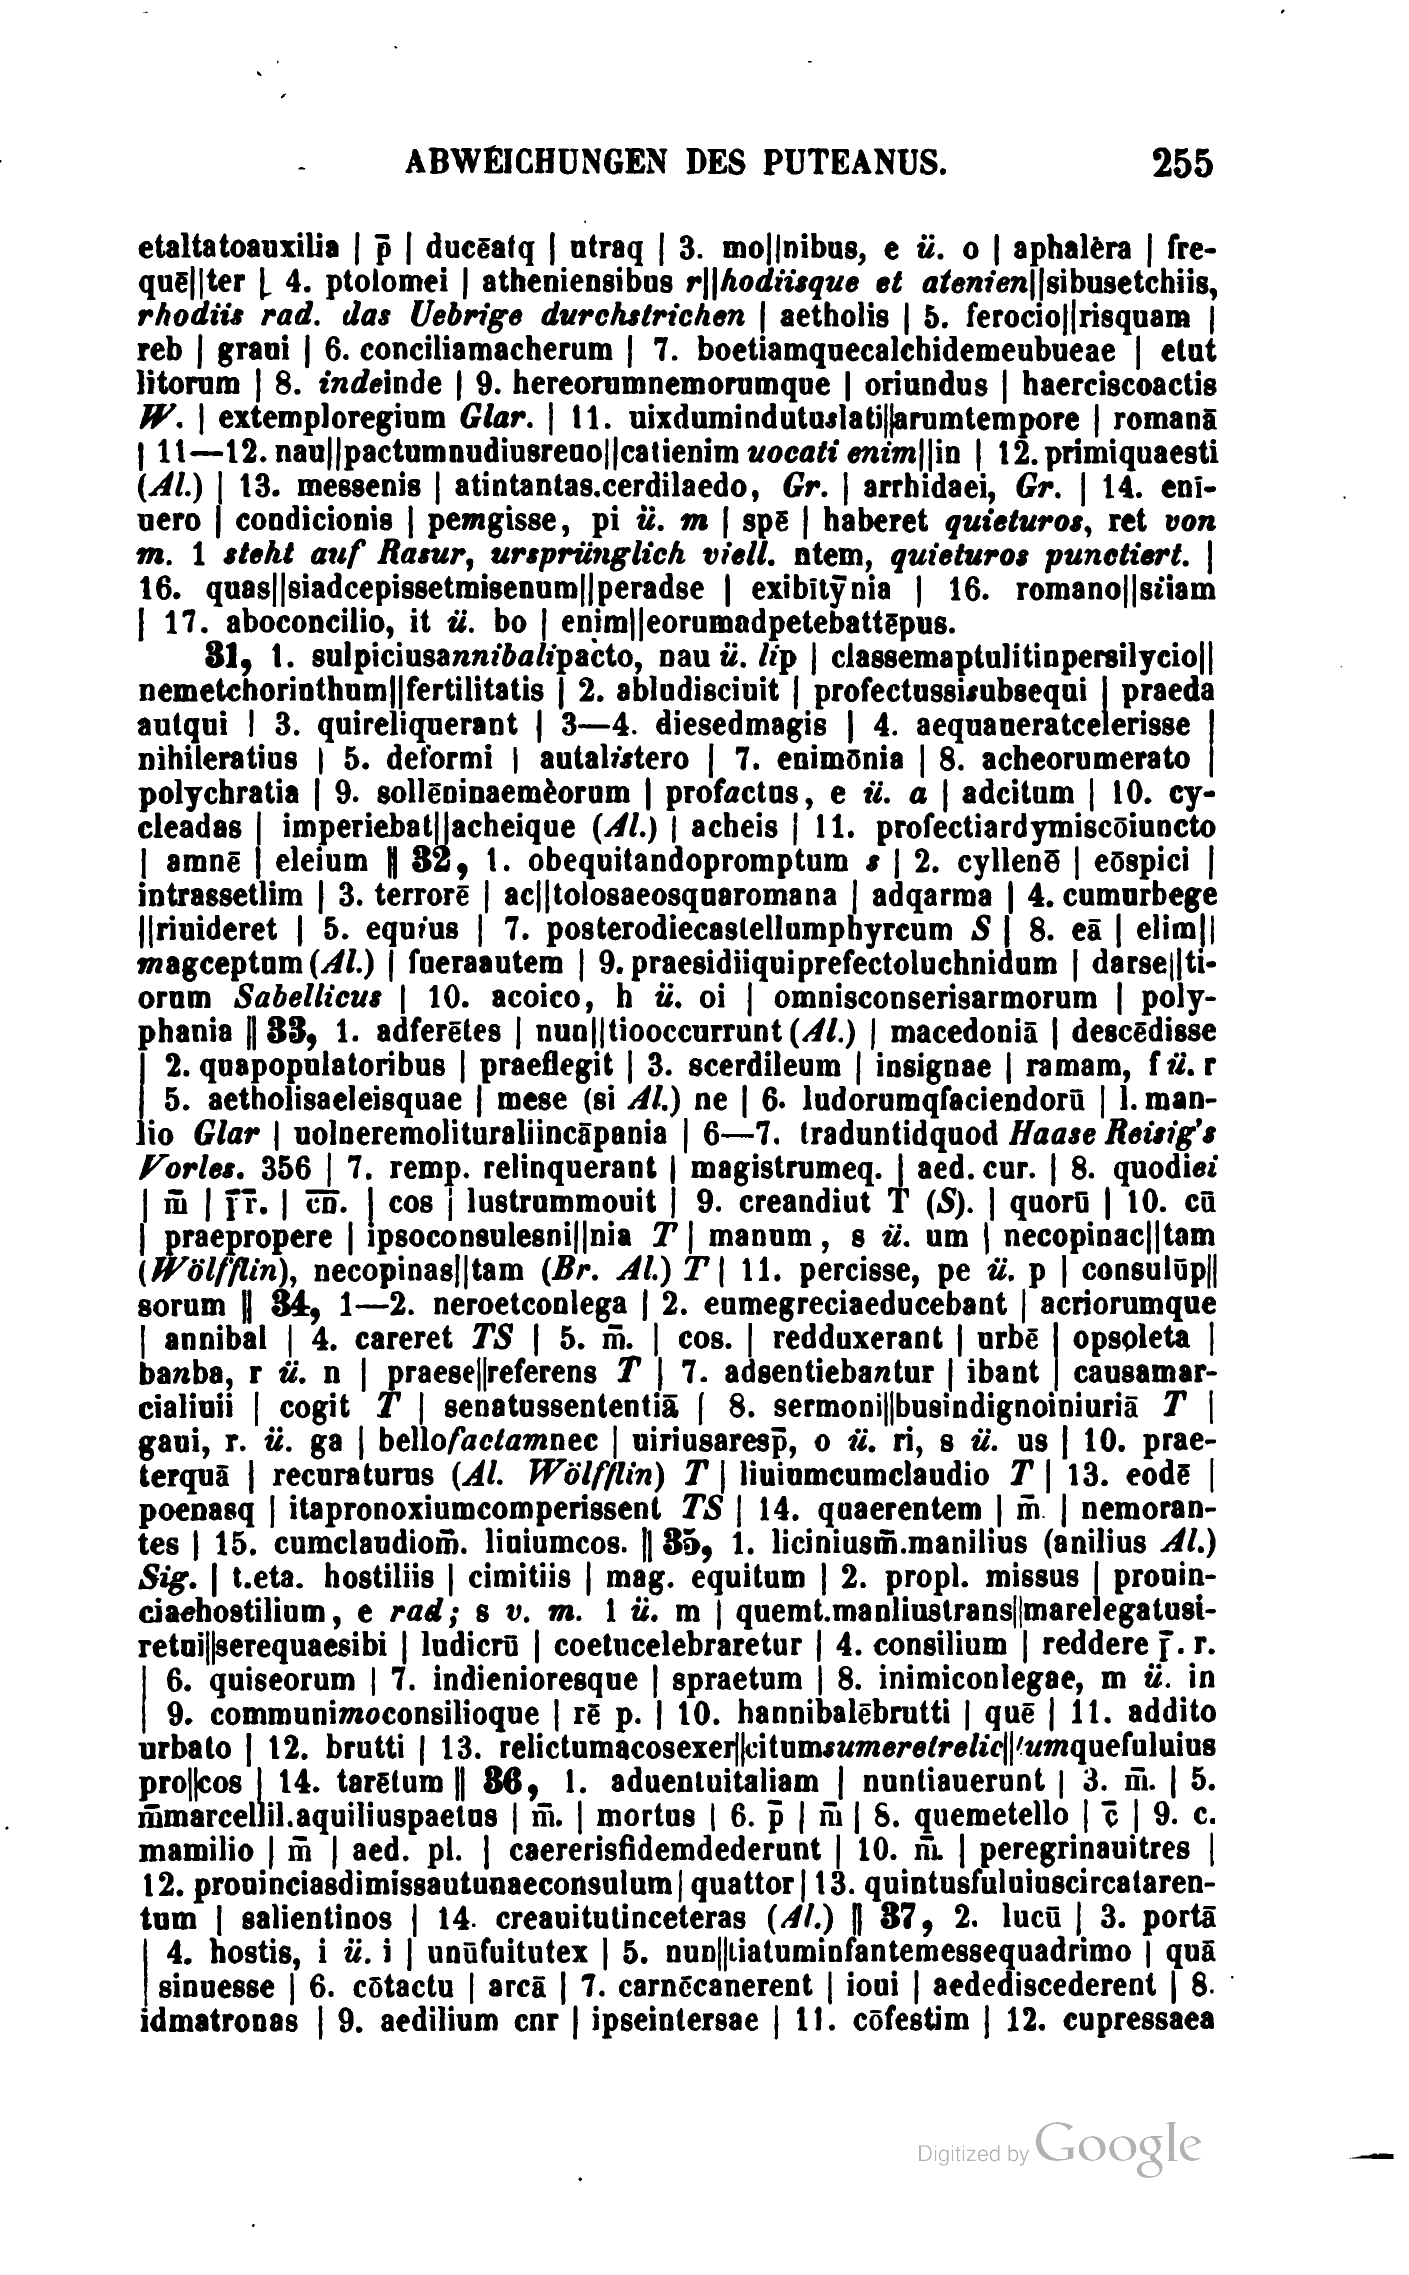 ABWEICHUNGEN DES PUTEANUS. 255
etaltatoauxilia | p̄ | ducēatq | utraq | 3. mo||nibus, e ü. o | aphalèra | fre-
quē||ter | 4. ptolomei | atheniensibus r||hodiisque et atenien||sibusetchiis,
rhodiis rad. das Uebrige durchstrichen | aetholis | 5. ferocio||risquam |
reb | graui | 6. conciliamacherum | 7. boetiamquecalchidemeubueae | etut
litorum | 8. indeinde | 9. hereorumnemorumque | oriundus | haerciscoactis
W. | extemploregium Glar. | 11. uixdumindutuslati||arumtempore | romanā
| 11—12. nau||pactumnudiusreuo||catienim uocati enim||in | 12. primiquaesti
(Al.) | 13. messenis | atintantas.cerdilaedo, Gr. | arrhidaei, Gr. | 14. enī-
uero | condicionis | pemgisse, pi ü. m | spē | haberet quieturos, ret von
m. 1 steht auf Rasur, ursprünglich viell. ntem, quieturos punctiert. |
16. quas||siadcepissetmisenum||peradse | exibītȳnia | 16. romano||siiam
| 17. aboconcilio, it ü. bo | enim||eorumadpetebattēpus.
31, 1. sulpiciusannibalipacto, nau ü. lip | classemaptulitinpersilycio||
nemetchorinthum||fertilitatis | 2. abludisciuit | profectussisubsequi | praeda
autqui | 3. quireliquerant | 3—4. diesedmagis | 4. aequaueratcelerisse |
nihileratius | 5. deformi | autalistero | 7. enimōnia | 8. acheorumerato |
polychratia | 9. sollēninaemèorum | profactus, e ü. a | adcitum | 10. cy-
cleadas | imperiebat||acheique (Al.) | acheis | 11. profectiardymiscōiuncto
| amnē | eleium || 32, 1. obequitandopromptum s | 2. cyllenē | eōspici |
intrassetlim | 3. terrorē | ac||tolosaeosquaromana | adqarma | 4. cumurbege
||riuideret | 5. equius | 7. posterodiecastellumphyrcum S | 8. eā | elim||
magceptum (Al.) | fueraautem | 9. praesidiiquiprefectoluchnidum | darse||ti-
orum Sabellicus | 10. acoico, h ü. oi | omnisconserisarmorum | poly-
phania || 33, 1. adferētes | nun||tiooccurrunt (Al.) | macedoniā | descēdisse
| 2. quapopulatoribus | praeflegit | 3. scerdileum | insignae | ramam, f ü. r
| 5. aetholisaeleisquae | mese (si Al.) ne | 6. ludorumqfaciendorū | l. man-
lio Glar | uolneremolituraliincāpania | 6—7. traduntidquod Haase Reisig's
Vorles. 356 | 7. remp. relinquerant | magistrumeq. | aed. cur. | 8. quodiei
| m̄ | f̄r̄. | c̄n̄. | cos | lustrummouit | 9. creandiut T (S). | quorū | 10. cū
| praepropere | ipsoconsulesni||nia T | manum, s ü. um | necopinac||tam
(Wölfflin), necopinas||tam (Br. Al.) T | 11. percisse, pe ü. p | consulūp||
sorum || 34, 1—2. neroetconlega | 2. eumegreciaeducebant | acriorumque
| annibal | 4. careret TS | 5. m̄. | cos. | redduxerant | urbē | opsoleta |
banba, r ü. n | praese||referens T | 7. adsentiebantur | ibant | causamar-
cialiuii | cogit T | senatussententiā | 8. sermoni||busindignoiniuriā T |
gaui, r. ü. ga | bellofactamnec | uiriusaresp̄, o ü. ri, s ü. us | 10. prae-
terquā | recuraturus (Al. Wölfflin) T | liuiumcumclaudio T | 13. eodē |
poenasq | itapronoxiumcomperissent TS | 14. quaerentem | m̄. | nemoran-
tes | 15. cumclaudiom̄. liuiumcos. || 35, 1. liciniusm̄.manilius (anilius Al.)
Sig. | t.eta. hostiliis | cimitiis | mag. equitum | 2. propl. missus | prouin-
ciaehostilium, e rad; s v. m. 1 ü. m | quemt.manliustrans||marelegatusi-
retui||serequaesibi | ludicrū | coetucelebraretur | 4. consilium | reddere f̄. r.
| 6. quiseorum | 7. indienioresque | spraetum | 8. inimiconlegae, m ü. in
| 9. communimoconsilioque | rē p. | 10. hannibalēbrutti | quē | 11. addito
urbato | 12. brutti | 13. relictumacosexer||citumsumeretrelic||tumquefuluius
pro||cos | 14. tarētum || 36, 1. aduentuitaliam | nuntiauerunt | 3. m̄. | 5.
m̄marcellil.aquiliuspaetus | m̄. | mortus | 6. p̄ | m̄ | 8. quemetello | c̄ | 9. c.
mamilio | m̄ | aed. pl. | caererisfidemdederunt | 10. m̄. | peregrinauitres |
12. prouinciasdimissautunaeconsulum | quattor | 13. quintusfuluiuscircataren-
tum | salientinos | 14. creauitutinceteras (Al.) || 37, 2. lucū | 3. portā
| 4. hostis, i ü. i | unūfuitutex | 5. nun||tiatuminfantemessequadrimo | quā
| sinuesse | 6. cōtactu | arcā | 7. carnēcanerent | ioui | aedediscederent | 8.
idmatronas | 9. aedilium cnr | ipseintersae | 11. cōfestim | 12. cupressaea
Digitized by Google